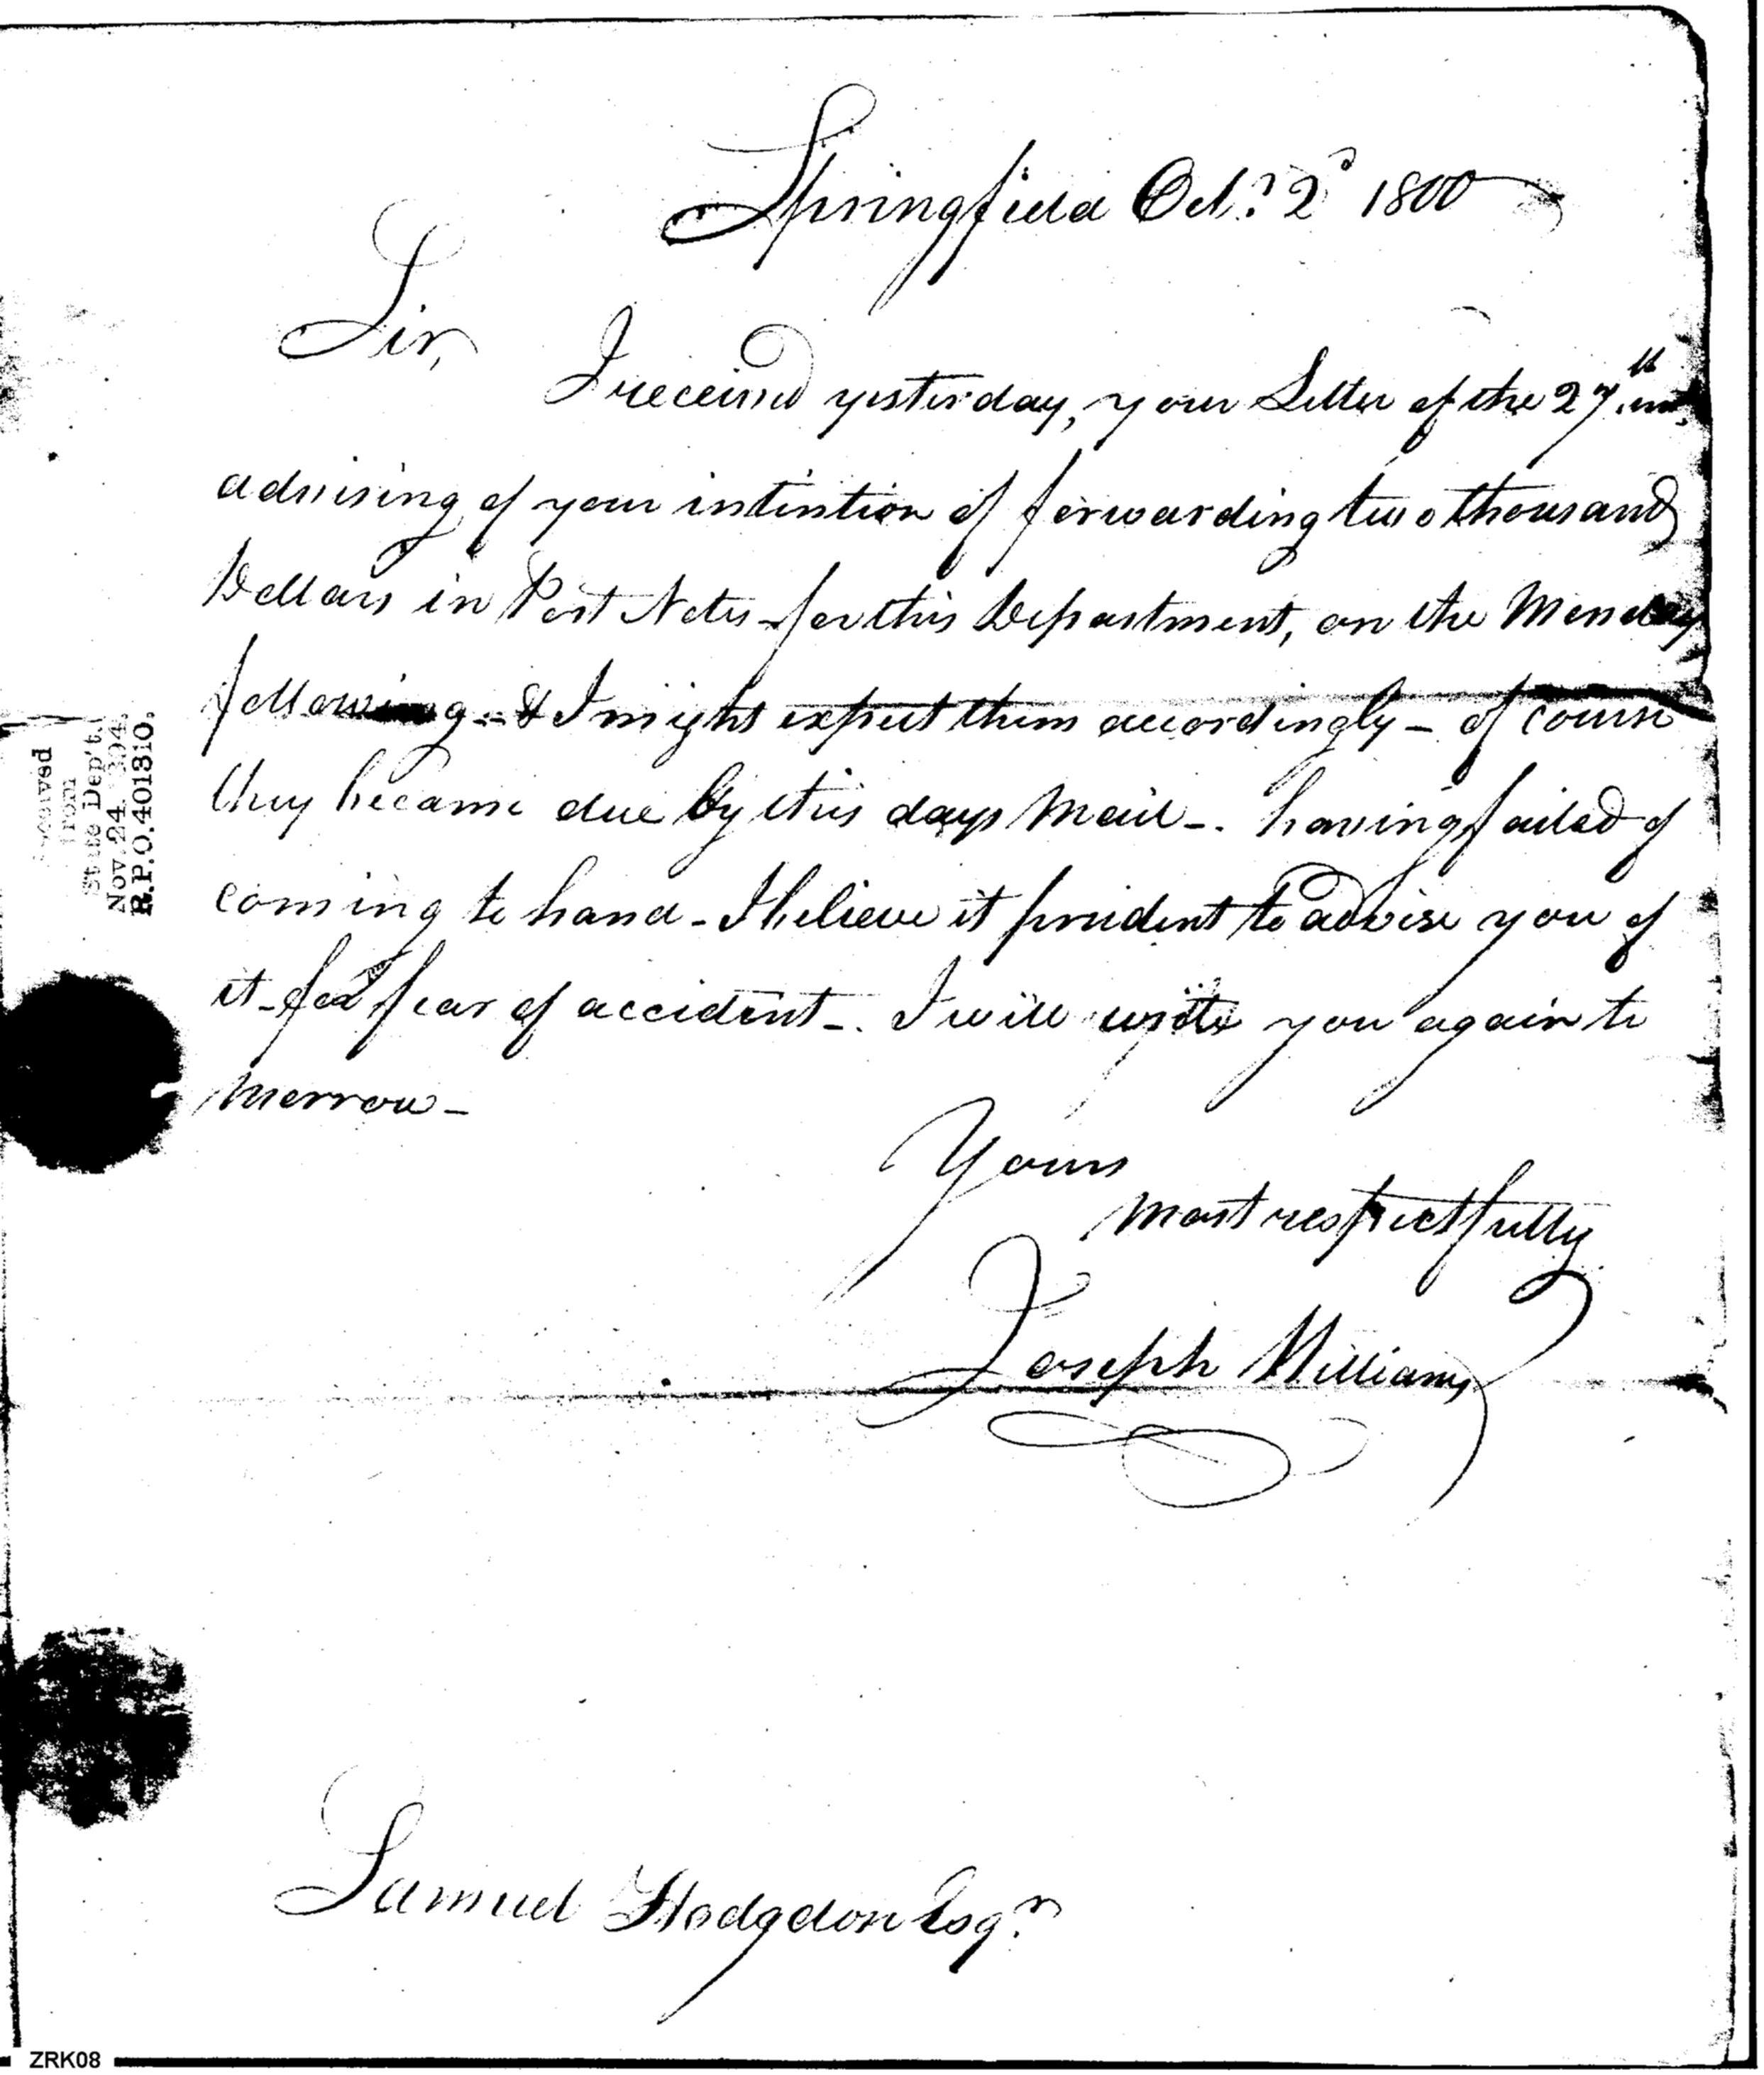 Springfield Oct.r 2d 1800
Sir,
I received yesterday, your Letter of the 27th
advising of your intention of forwarding two thousand
Dollars in Post Notes for this Department, on the Monday
following - & I might expect them accordingly - of course
they became due by this days Mail -. having failed of
coming to hand - I believe it prudent to advise you of
it - for fear of accident -. I will write you again to
morrow -
Yours
most respectfully
Joseph Williams
Samuel Hodgdon Esqr.
Received
from
State Dep't.
Nov. 24
R.P.O. 401310.
ZRK08